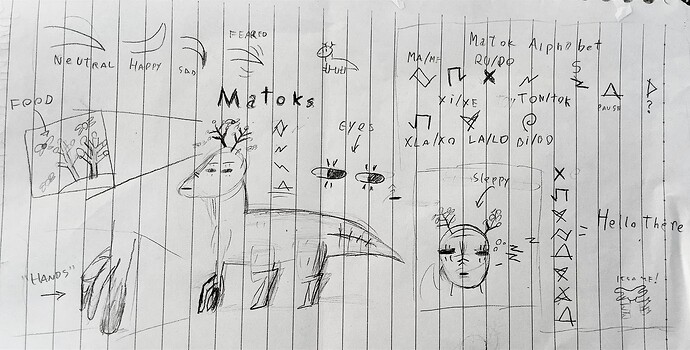 NEUTRAL
HAPPY
SAD
FEARED
FOOD
Matoks
EYES
"HANDS"
Matok Alphabet
MA/ME
RU/DO
S
XI/XE
TON/tok
PAUSE
?
XLA/XO
LA/LO
DI/OD
Sleepy
= Hello There